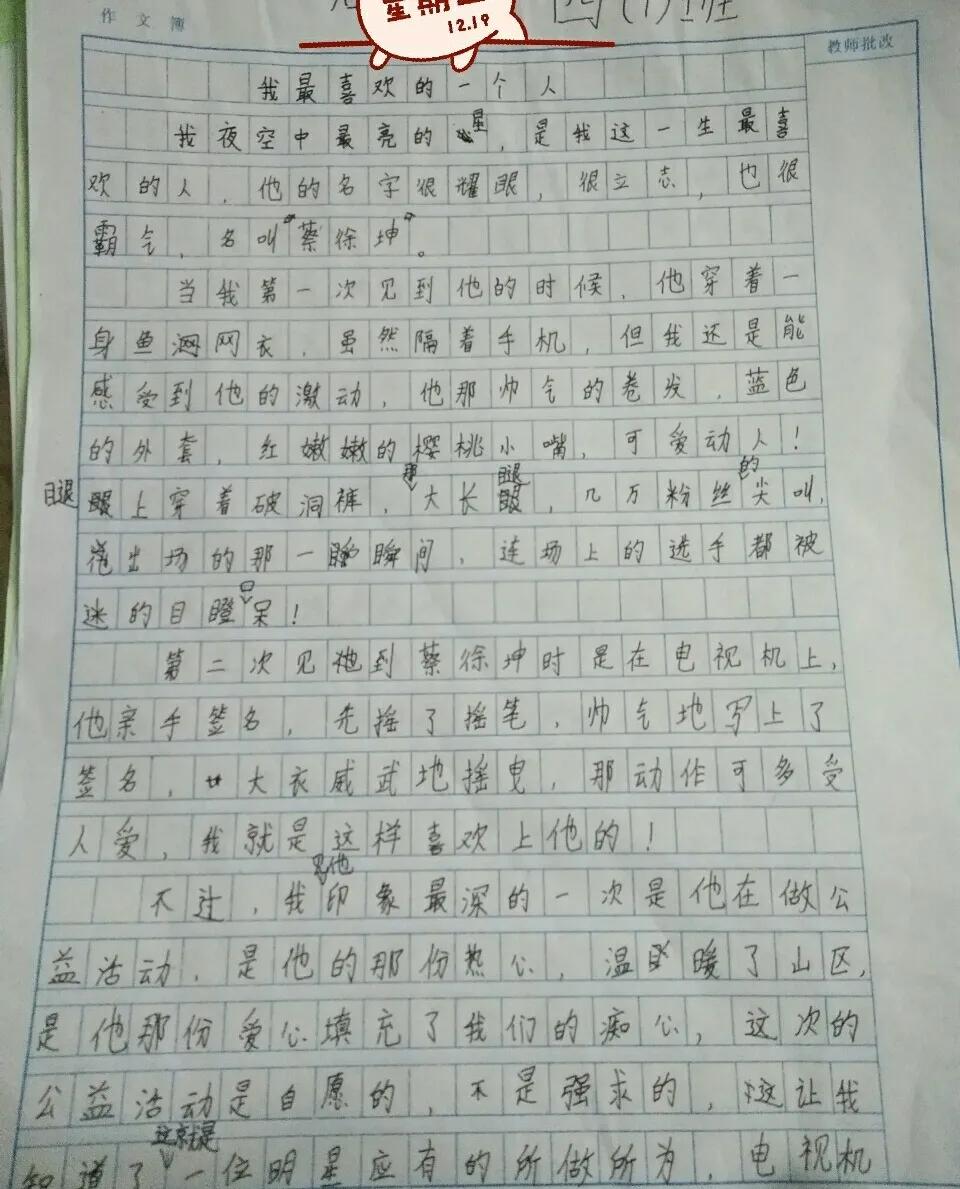 作文簿
星期
12.19
四(1)班
教师批改
我最喜欢的一个人
我夜空中最亮的星,是我这一生最喜
欢的人,他的名字很耀眼,很立志,也很
霸气,名叫“蔡徐坤”。
当我第一次见到他的时候,他穿着一
身鱼网网衣,虽然隔着手机,但我还是能
感受到他的激动,他那帅气的卷发,蓝色
的外套,红嫩嫩的樱桃小嘴,可爱动人!
腿上穿着破洞裤,那大长腿,几万粉丝的尖叫,
出场的那一瞬间,连场上的选手都被
迷的目瞪口呆!
第二次见到蔡徐坤时是在电视机上,
他亲手签名,先摇了摇笔,帅气地写上了
签名,大衣威武地摇曳,那动作可多受
人爱,我就是这样喜欢上他的!
不过,我见他印象最深的一次是他在做公
益活动,是他的那份热心,温暖了山区,
是他那份爱心填充了我们的痴心,这次的
公益活动是自愿的,不是强求的,这让我
知道了这就是一位明星应有的所做所为,电视机